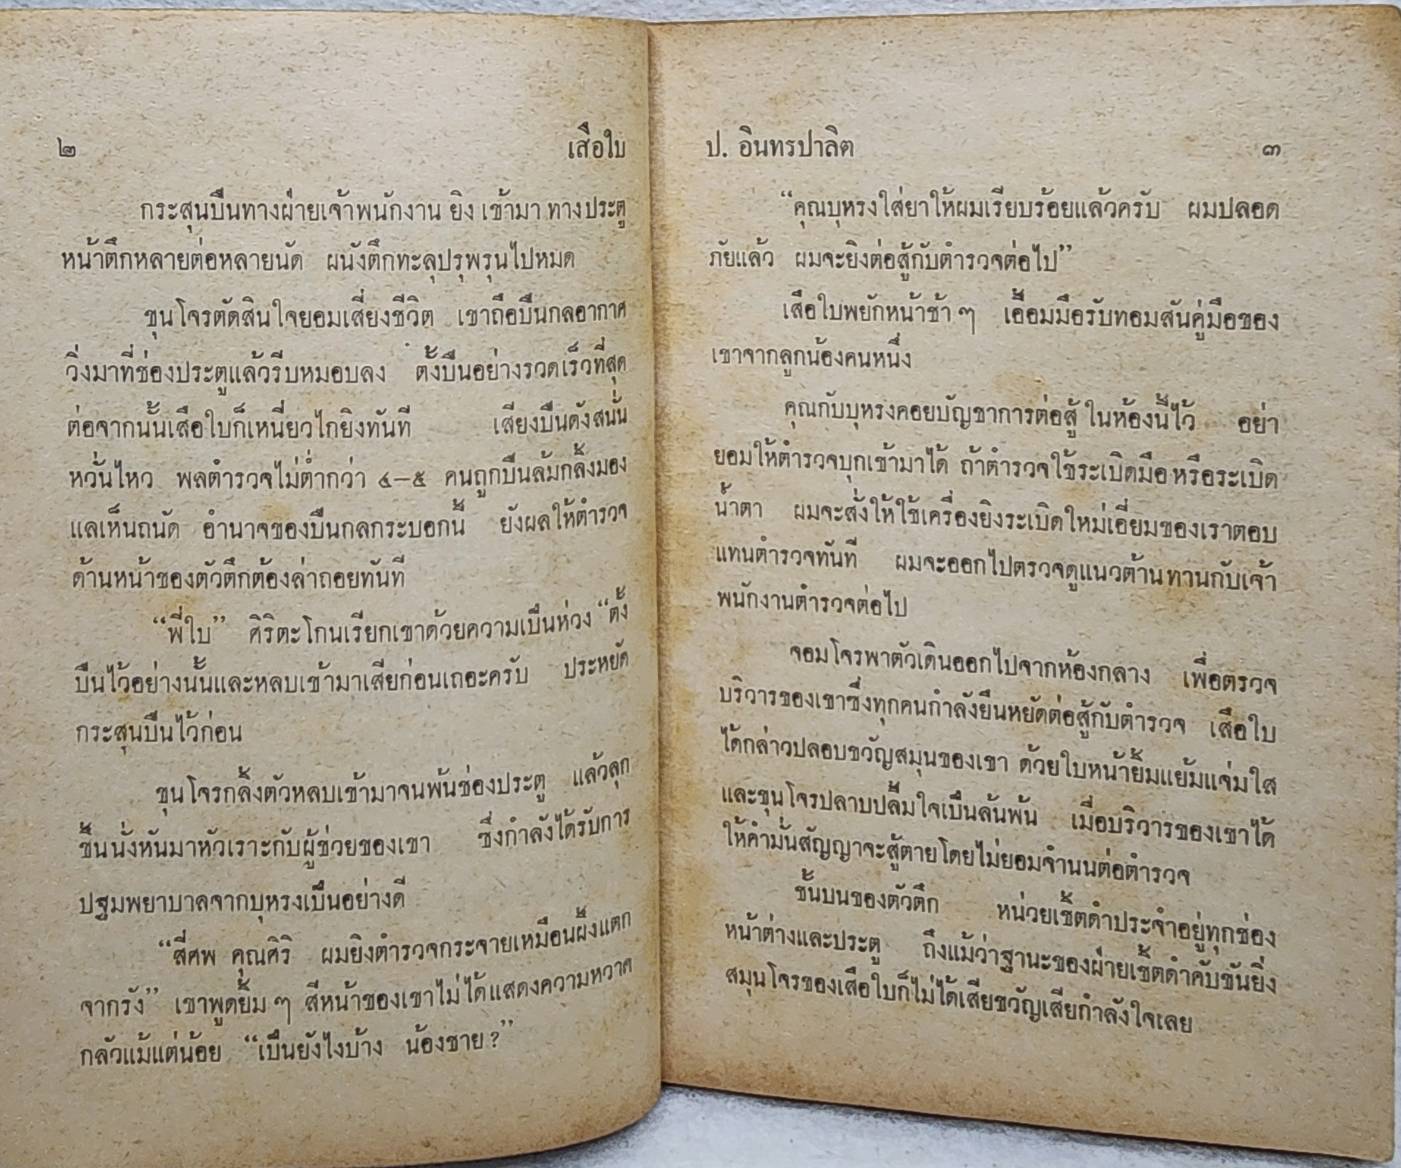 ๒ เสือใบ
กระสุนปืนทางฝ่ายเจ้าพนักงาน ยิง เข้ามา ทางประตู
หน้าตึกหลายต่อหลายนัด ผนังตึกทะลุปรุพรุนไปหมด
ขุนโจรตัดสินใจยอมเสี่ยงชีวิต เขาถือปืนกลอากาศ
วิ่งมาที่ช่องประตูแล้วรีบหมอบลง ตั้งปืนอย่างรวดเร็วที่สุด
ต่อจากนั้นเสือใบก็เหนี่ยวไกยิงทันที เสียงปืนดังสนั่น
หวั่นไหว พลตำรวจไม่ต่ำกว่า ๔–๕ คนถูกปืนล้มกลิ้งมอง
แลเห็นถนัด อำนาจของปืนกลกระบอกนี้ ยังผลให้ตำรวจ
ด้านหน้าของตัวตึกต้องล่าถอยทันที
“พี่ใบ” ศิริตะโกนเรียกเขาด้วยความเป็นห่วง “ตั้ง
ปืนไว้อย่างนั้นและหลบเข้ามาเสียก่อนเถอะครับ ประหยัด
กระสุนปืนไว้ก่อน
ขุนโจรกลิ้งตัวหลบเข้ามาจนพ้นช่องประตู แล้วลุก
ขึ้นนั่งหันมาหัวเราะกับผู้ช่วยของเขา ซึ่งกำลังได้รับการ
ปฐมพยาบาลจากบุหรงเป็นอย่างดี
“สี่ศพ คุณศิริ ผมยิงตำรวจกระจายเหมือนผึ้งแตก
จากรัง” เขาพูดยิ้ม ๆ สีหน้าของเขาไม่ได้แสดงความหวาด
กลัวแม้แต่น้อย “เป็นยังไงบ้าง น้องชาย?”
ป. อินทรปาลิต ๓
“คุณบุหรงใส่ยาให้ผมเรียบร้อยแล้วครับ ผมปลอด
ภัยแล้ว ผมจะยิงต่อสู้กับตำรวจต่อไป”
เสือใบพยักหน้าช้า ๆ เอื้อมมือรับทอมสันคู่มือของ
เขาจากลูกน้องคนหนึ่ง
คุณกับบุหรงคอยบัญชาการต่อสู้ ในห้องนี้ไว้ อย่า
ยอมให้ตำรวจบุกเข้ามาได้ ถ้าตำรวจใช้ระเบิดมือหรือระเบิด
น้ำตา ผมจะสั่งให้ใช้เครื่องยิงระเบิดใหม่เอี่ยมของเราตอบ
แทนตำรวจทันที ผมจะออกไปตรวจดูแนวต้านทานกับเจ้า
พนักงานตำรวจต่อไป
จอมโจรพาตัวเดินออกไปจากห้องกลาง เพื่อตรวจ
บริวารของเขาซึ่งทุกคนกำลังยืนหยัดต่อสู้กับตำรวจ เสือใบ
ได้กล่าวปลอบขวัญสมุนของเขา ด้วยใบหน้ายิ้มแย้มแจ่มใส
และขุนโจรปลาบปลื้มใจเป็นล้นพ้น เมื่อบริวารของเขาได้
ให้คำมั่นสัญญาจะสู้ตายโดยไม่ยอมจำนนต่อตำรวจ
ชั้นบนของตัวตึก หน่วยเชิ้ตดำประจำอยู่ทุกช่อง
หน้าต่างและประตู ถึงแม้ว่าฐานะของฝ่ายเชิ้ตดำคับขันยิ่ง
สมุนโจรของเสือใบก็ไม่ได้เสียขวัญเสียกำลังใจเลย